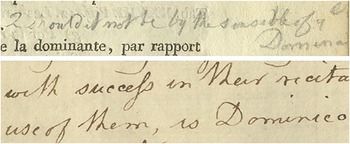 would it not be by the sensible of
Domina
e la dominante, par rapport
with success in their recita
use of them, is Dominico